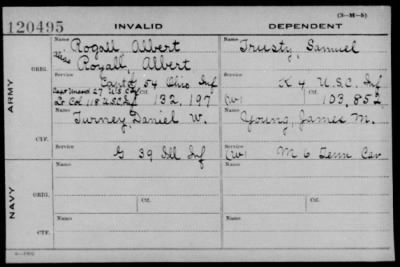 (3-M-5)
120495 INVALID DEPENDENT
Name Rogall, Albert
alias Royall, Albert
Name Trusty, Samuel
ARMY
ORIG.
Service Capt 54 Ohio Inf
Capt 27 U.S.C.
Lt Col 118 U.S.C. Inf Ctf. 132,197
Service K 4 U.S.C. Inf
(W) Ctf. 103,852
CTF.
Name Turney, Daniel W.
Name Young, James M.
Service G 39 Ill Inf
Service (W) M 6 Tenn Cav
NAVY
ORIG.
Name
Name
Service
Ctf.
Service
Ctf.
CTF.
Name
Name
Service
Service